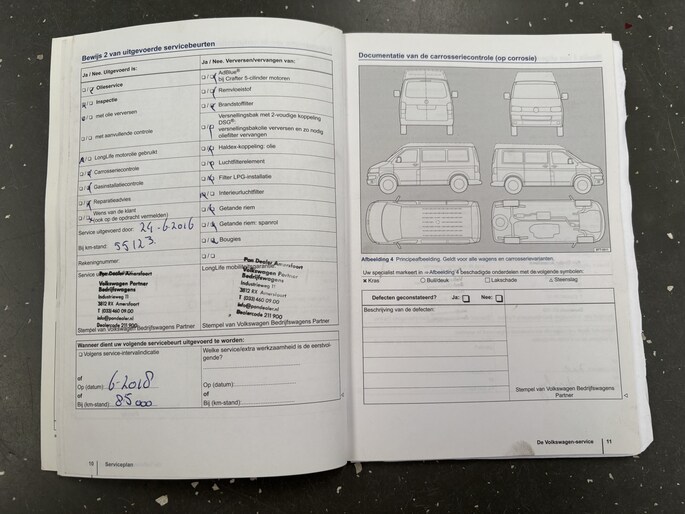 Bewijs 2 van uitgevoerde servicebeurten
Ja / Nee. Uitgevoerd is:
Olieservice
Inspectie
met olie verversen
met aanvullende controle
LongLife motorolie gebruikt
Carrosseriecontrole
Gasinstallatiecontrole
Reparatieadvies
Wens van de klant
(ook op de opdracht vermelden)
Service uitgevoerd door: 24-6-2016
Bij km-stand: 55123
Rekeningnummer:
Pon Dealer Amersfoort
Volkswagen Partner
Bedrijfswagens
Industrieweg 11
3812 RX Amersfoort
T (033) 460 09 00
info@pondealer.nl
Dealercode 211 900
Stempel van Volkswagen Bedrijfswagens Partner
Ja / Nee. Verversen/vervangen van:
AdBlue®
bij Crafter 5-cilinder motoren
Remvloeistof
Brandstoffilter
Versnellingsbak met 2-voudige koppeling
DSG®:
versnellingsbakolie verversen en zo nodig
oliefilter vervangen
Haldex-koppeling: olie
Luchtfilterelement
Filter LPG-installatie
Interieurluchtfilter
Getande riem
Getande riem: spanrol
Bougies
LongLife mobiliteitsgarantie
Pon Dealer Amersfoort
Volkswagen Partner
Bedrijfswagens
Industrieweg 11
3812 RX Amersfoort
T (033) 460 09 00
info@pondealer.nl
Dealercode 211 900
Stempel van Volkswagen Bedrijfswagens Partner
Wanneer dient uw volgende servicebeurt uitgevoerd te worden:
Volgens service-intervalindicatie
of
Op (datum): 6-2018
of
Bij (km-stand): 85000
Welke service/extra werkzaamheid is de eerstvol-
gende?
Op (datum):
of
Bij (km-stand):
10 Serviceplan
Documentatie van de carrosseriecontrole (op corrosie)
Afbeelding 4 Principeafbeelding. Geldt voor alle wagens en carrosserievarianten.
Uw specialist markeert in ⇒Afbeelding 4 beschadigde onderdelen met de volgende symbolen:
× Kras ○ Buil/deuk □ Lakschade △ Steenslag
Defecten geconstateerd? Ja: Nee:
Beschrijving van de defecten:
Stempel van Volkswagen Bedrijfswagens
Partner
De Volkswagen-service 11